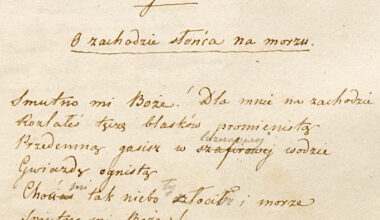 O zachodzie słońca na morzu.
Smutno mi Boże! Dla mnie na zachodzie
Rozlałeś tęczę blasków promienistą
lazurowej
Przedemną gasisz w szafirowej wodzie
Gwiazdy ognistą
mi ty
Choć tak niebo złocisz i morze
Smutno mi Boże!